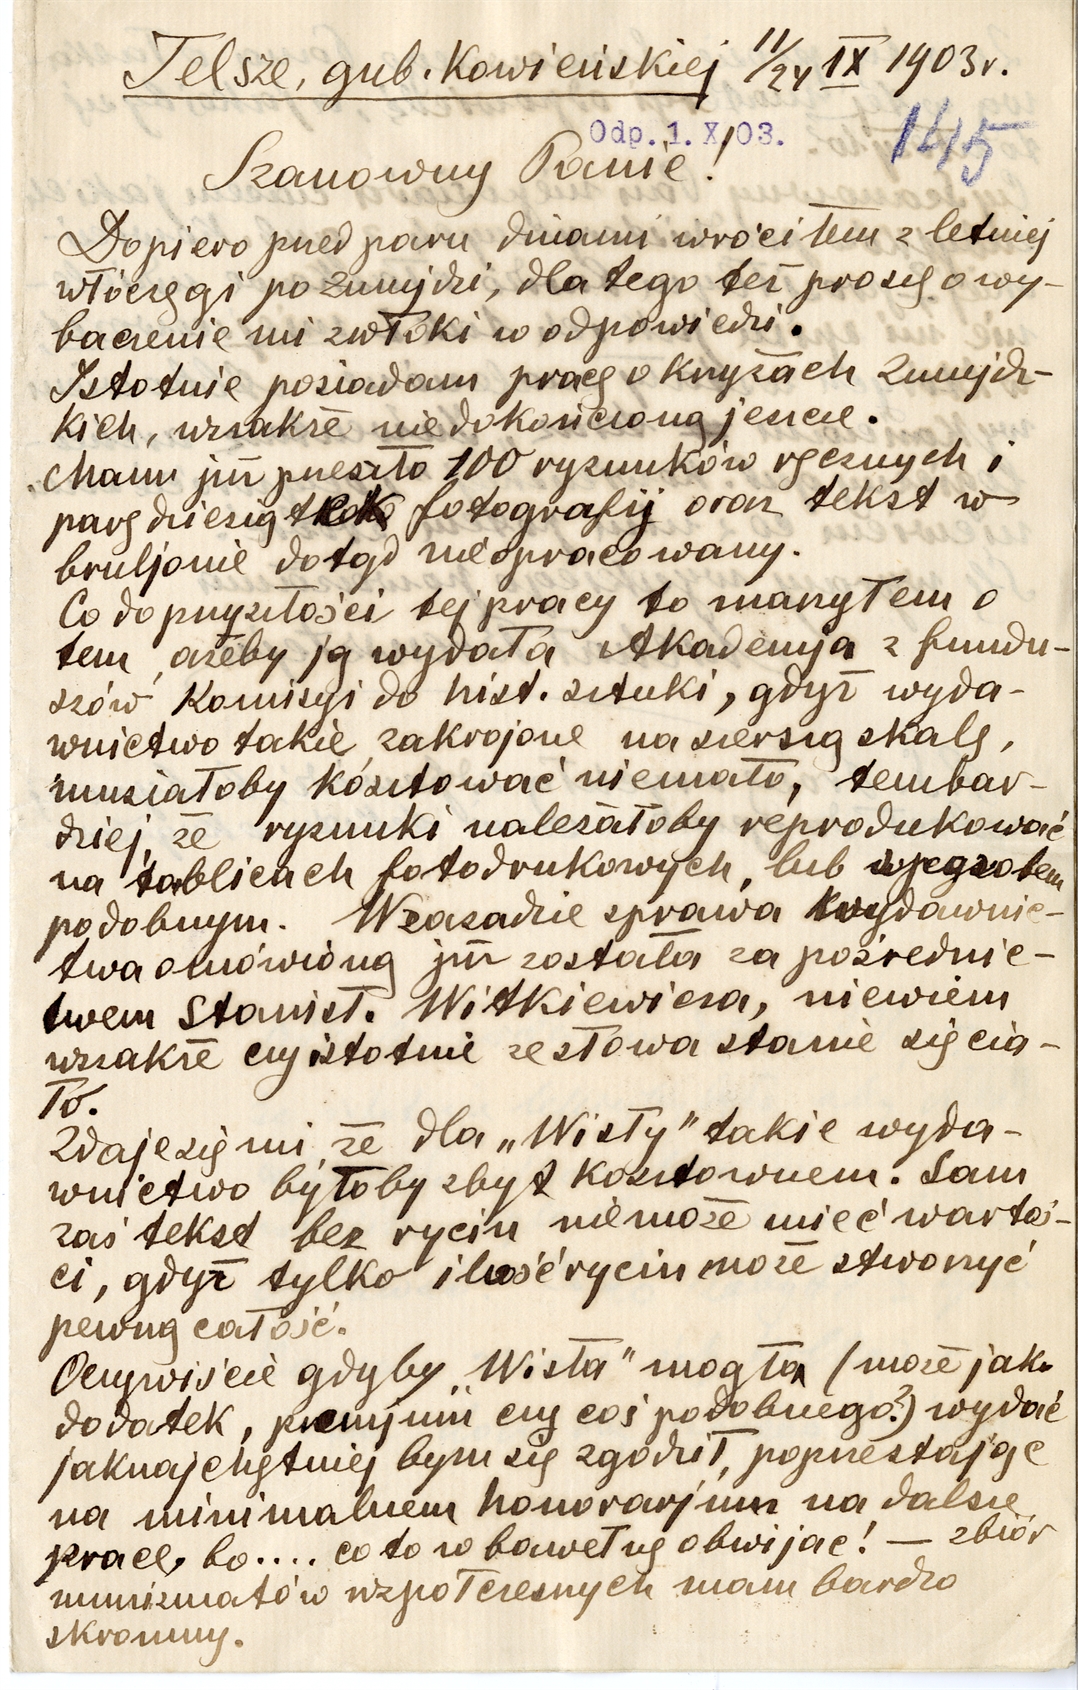 Telsze, gub. Kowieńskiej 11/24 IX 1903 r.
Odp. 1. X 03.
145
Szanowny Panie!
Dopiero przed paru dniami wróciłem z letniej
włóczęgi po Żmujdzi, dlatego też proszę o wy-
baczenie mi zwłoki w odpowiedzi.
Istotnie posiadam pracę o krzyżach żmujdz-
kich, wszakże niedokończoną jeszcze.
Mam już przeszło 100 rysunków ręcznych i
parędziesiąt fotografij oraz tekst w
bruljonie dotąd nieopracowany.
Co do przyszłości tej pracy to marzyłem o
tem, ażeby ją wydała Akademja z fundu-
szów Komisyi do hist. sztuki, gdyż wyda-
wnictwo takie, zakrojone na szerszą skalę,
musiałoby kosztować niemało, tembar-
dziej, że rysunki należałoby reprodukować
na tablicach fotodrukowych, lub
podobnym. W zasadzie sprawa wydawnic-
twa omówioną już została za pośrednic-
twem Stanisł. Witkiewicza, niewiem
wszakże czy istotnie ze słowa stanie się cia-
ło.
Zdaje się mi, że dla „Wisły” takie wyda-
wnictwo byłoby zbyt kosztownem. Sam
zaś tekst bez rycin nie może mieć wartoś-
ci, gdyż tylko ilość rycin może stworzyć
pewną całość.
Oczywiście gdyby „Wisła” mogła (może jako
dodatek, premjum czy coś podobnego?) wydać
jaknajchętniej bym się zgodził, poprzestając
na minimalnem honorarjum na dalsze
prace, bo.... co to w bawełnę obwijać! — zbiór
numizmatów współczesnych mam bardzo
skromny.